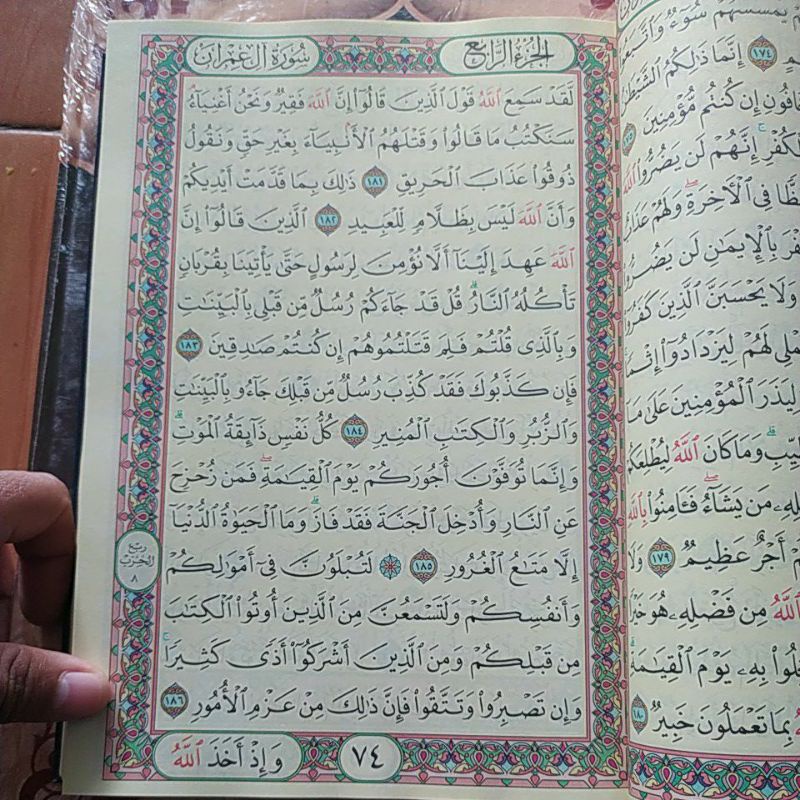 سُورَةُ آلِ عِمْرَان
الجُزْءُ الرَّابِعُ
لَّقَدْ سَمِعَ ٱللَّهُ قَوْلَ ٱلَّذِينَ قَالُوٓا۟ إِنَّ ٱللَّهَ فَقِيرٌ وَنَحْنُ أَغْنِيَآءُ ۘ
سَنَكْتُبُ مَا قَالُوا۟ وَقَتْلَهُمُ ٱلْأَنۢبِيَآءَ بِغَيْرِ حَقٍّ وَنَقُولُ
ذُوقُوا۟ عَذَابَ ٱلْحَرِيقِ ١٨١ ذَٰلِكَ بِمَا قَدَّمَتْ أَيْدِيكُمْ
وَأَنَّ ٱللَّهَ لَيْسَ بِظَلَّامٍ لِّلْعَبِيدِ ١٨٢ ٱلَّذِينَ قَالُوٓا۟ إِنَّ
ٱللَّهَ عَهِدَ إِلَيْنَآ أَلَّا نُؤْمِنَ لِرَسُولٍ حَتَّىٰ يَأْتِيَنَا بِقُرْبَانٍ
تَأْكُلُهُ ٱلنَّارُ ۗ قُلْ قَدْ جَآءَكُمْ رُسُلٌ مِّن قَبْلِى بِٱلْبَيِّنَٰتِ
وَبِٱلَّذِى قُلْتُمْ فَلِمَ قَتَلْتُمُوهُمْ إِن كُنتُمْ صَٰدِقِينَ ١٨٣
فَإِن كَذَّبُوكَ فَقَدْ كُذِّبَ رُسُلٌ مِّن قَبْلِكَ جَآءُو بِٱلْبَيِّنَٰتِ
وَٱلزُّبُرِ وَٱلْكِتَٰبِ ٱلْمُنِيرِ ١٨٤ كُلُّ نَفْسٍ ذَآئِقَةُ ٱلْمَوْتِ ۗ
وَإِنَّمَا تُوَفَّوْنَ أُجُورَكُمْ يَوْمَ ٱلْقِيَٰمَةِ ۖ فَمَن زُحْزِحَ
عَنِ ٱلنَّارِ وَأُدْخِلَ ٱلْجَنَّةَ فَقَدْ فَازَ ۗ وَمَا ٱلْحَيَوٰةُ ٱلدُّنْيَآ
إِلَّا مَتَٰعُ ٱلْغُرُورِ ١٨٥ ۞ لَتُبْلَوُنَّ فِىٓ أَمْوَٰلِكُمْ
وَأَنفُسِكُمْ وَلَتَسْمَعُنَّ مِنَ ٱلَّذِينَ أُوتُوا۟ ٱلْكِتَٰبَ
مِن قَبْلِكُمْ وَمِنَ ٱلَّذِينَ أَشْرَكُوٓا۟ أَذًى كَثِيرًا ۚ
وَإِن تَصْبِرُوا۟ وَتَتَّقُوا۟ فَإِنَّ ذَٰلِكَ مِنْ عَزْمِ ٱلْأُمُورِ ١٨٦
رُبْعُ
الحِزْبِ
٨
٧٤
وَإِذْ أَخَذَ ٱللَّهُ
يَمْسَسْهُمْ سُوٓءٌ
١٧٤ إِنَّمَا ذَٰلِكُمُ
إِن كُنتُم مُّؤْمِنِينَ
إِنَّهُمْ لَن يَضُرُّوا۟ ٱللَّهَ
فِى ٱلْأَخِرَةِ ۖ وَلَهُمْ
بِٱلْإِيمَٰنِ لَن
وَلَا يَحْسَبَنَّ ٱلَّذِينَ كَفَرُوٓا۟
لَهُمْ لِيَزْدَادُوٓا۟ إِثْمًا
لِيَذَرَ ٱلْمُؤْمِنِينَ عَلَىٰ مَا
وَمَا كَانَ ٱللَّهُ لِيُطْلِعَكُمْ
مَن يَشَآءُ ۖ فَـَٔامِنُوا۟ بِٱللَّهِ
أَجْرٌ عَظِيمٌ ١٧٩ وَلَا
ٱللَّهُ مِن فَضْلِهِۦ هُوَ خَيْرًا
بِهِۦ يَوْمَ ٱلْقِيَٰمَةِ ۗ
بِمَا تَعْمَلُونَ خَبِيرٌ ١٨٠